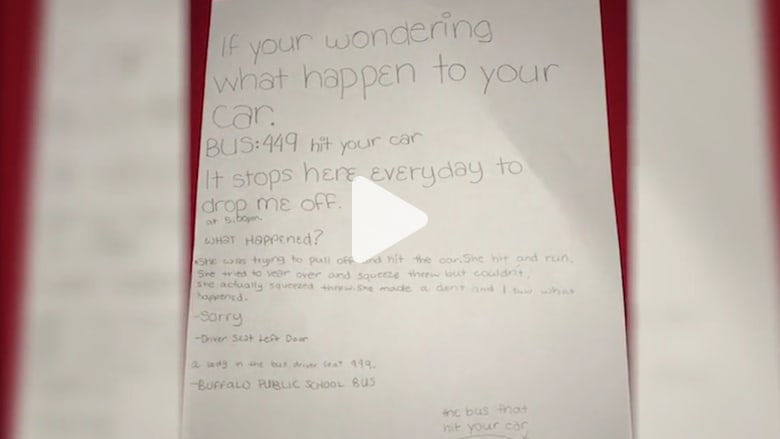 If your wondering
what happen to your
car.
BUS:449 hit your car
It stops here everyday to
drop me off.
at 5:00pm.
WHAT HAPPENED?
•She was trying to pull off and hit the car.She hit and run.
She tried to vear over and squeeze threw but couldn't,
she actually squeezed threw.She made a dent and I saw what
happened.
-Sorry
-Driver Seat Left Door
a lady in the bus driver seat 449.
-BUFFALO PUBLIC SCHOOL BUS
the bus that
hit your car